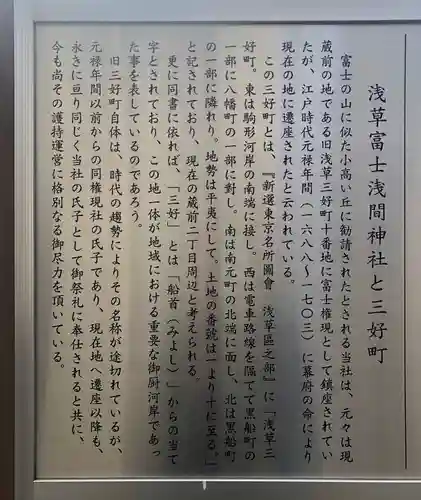 浅草富士浅間神社と三好町
富士の山に似た小高い丘に勧請されたとされる当社は、元々は現
蔵前の地である旧浅草三好町十番地に富士権現として鎮座されてい
たが、江戸時代元禄年間(一六八八〜一七〇三)に幕府の命により
現在の地に遷座されたと云われている。
この三好町とは、『新選東京名所圖會 浅草區之部』に「浅草三
好町。東は駒形河岸の南端に接し。西は電車路線を隔てて黒船町の
一部に八幡町の一部に對し。南は南元町の北端に面し、北は黒船町
の一部に隣れり。地勢は平夷にして。土地の番號は一より十に至る。」
と記されており、現在の蔵前二丁目周辺と考えられる。
更に同書に依れば、「三好」とは「船首(みよし)」からの当て
字とされており、この地一体が地域における重要な御厨河岸であっ
た事を表しているのであろう。
旧三好町自体は、時代の趨勢によりその名称が途切れているが、
元禄年間以前からの同権現社の氏子であり、現在地へ遷座以降も、
永きに亘り同じく当社の氏子として御祭礼に奉仕されると共に、
今も尚その護持運営に格別なる御尽力を頂いている。